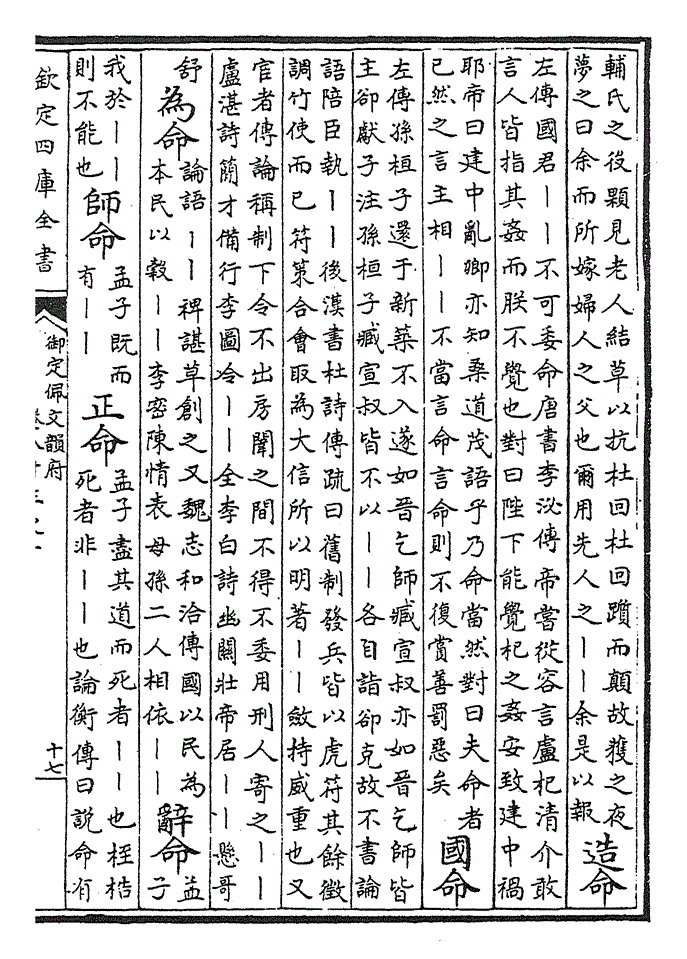 輔氏之役顆見老人結草以抗杜回杜回躓而顛故獲之夜
夢之曰余而所嫁婦人之父也爾用先人之丨丨余是以報
造命
左傳國君丨丨不可委命唐書李泌傳帝嘗從容言盧杞清介敢
言人皆指其姦而朕不覺也對曰陛下能覺杞之姦安致建中禍
耶帝曰建中亂卿亦知桑道茂語乎乃命當然對曰夫命者
已然之言主相丨丨不當言命言命則不復賞善罰惡矣
國命
左傳孫桓子還于新築不入遂如晉乞師臧宣叔亦如晉乞師皆
主卻獻子注孫桓子臧宣叔皆不以丨丨各自詣卻克故不書論
語陪臣執丨丨後漢書杜詩傳疏曰舊制發兵皆以虎符其餘徵
調竹使而已符策合會取為大信所以明著丨丨斂持威重也又
官者傳論稱制下令不出房闈之間不得不委用刑人寄之丨丨
盧湛詩簡才備行李圖冷丨丨全李白詩幽關壯帝居丨丨懸哥
舒
為命
論語丨丨裨諶草創之又魏志和洽傳國以民為
本民以穀丨丨李密陳情表母孫二人相依丨丨
辭命
孟
子
我於丨丨
則不能也
師命
孟子既而
有丨丨
正命
孟子盡其道而死者丨丨也桎梏
死者非丨丨也論衡傳曰說命有
欽定四庫全書
御定佩文韻府
卷八十三之一
十七